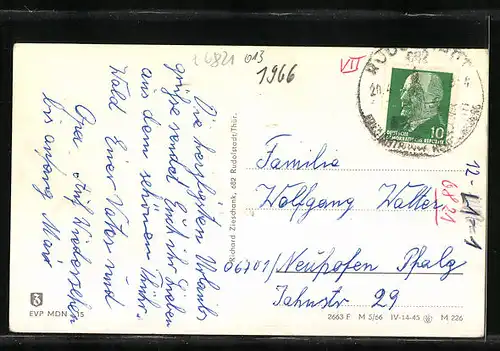 26821 013
1966
VII
RUDOLSTADT
DEUTSCHE
DEMOKRATISCHE REPUBLIK
10
Die herzlichsten Urlaubs
grüße sendet Euch ihr Lieben
aus dem schönen Thür.
Wald Euer Vater und
Opa. Auf Wiedersehen
bis anfang Mai
Richard Zieschank, 682 Rudolstadt/Thür.
Familie
Wolfgang Walter
06701/Neuhofen Pfalz
Jahnstr 29
12-
0821
EVP MDN
2663 F M 5/66 IV-14-45 M 226